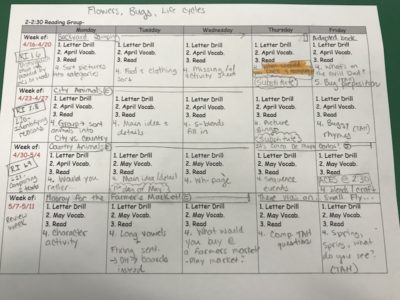 Flowers, Bugs, Life cycles
2-2:30 Reading Group-
Monday Tuesday Wednesday Thursday Friday
Week of:
4/16-4/20
Backyard
Adapted book
1. Letter Drill
2. April Vocab.
3. Read
4. Sort pictures into categories
1. Letter Drill
2. April Vocab.
3. Read
4. Food & clothing sort
1. Letter Drill
2. April Vocab.
3. Read
4. Missing
activity sheet
1. Letter Drill
2. April Vocab.
3. Read
1. Letter Drill
2. April Vocab.
3. Read
4. What's on
5. Bug preposition
Week of:
4/23-4/27
City Animals
1. Letter Drill
2. April Vocab.
3. Read
4. Group & sort
animals into
City vs. Country
1. Letter Drill
2. April Vocab.
3. Read
4. Main idea &
details
1. Letter Drill
2. April Vocab.
3. Read
4. S-blends
fill in
1. Letter Drill
2. April Vocab.
3. Read
4. Picture
Bingo
1. Letter Drill
2. April Vocab.
3. Read
4. Bugsy
(TAH)
Week of:
4/30-5/4
Country Animals
1. Letter Drill
2. April Vocab.
3. Read
4. Would you
rather...
1. Letter Drill
2. May Vocab.
3. Read
4. Main idea/detail
1. Letter Drill
2. May Vocab.
3. Read
4. Wh-page
1. Letter Drill
2. May Vocab.
3. Read
4. Sequence
events
1. Letter Drill
2. May Vocab.
3. Read
ACES @ 2:30
craft
Week of:
5/7-5/11
Review
week
Hooray for the Farmer's Market!
There Was an
Small Fly...
1. Letter Drill
2. May Vocab.
3. Read
4. Character
activity
1. Letter Drill
2. May Vocab.
3. Read
4. Long vowels
Fixing sent.
boards
1. Letter Drill
2. May Vocab.
3. Read
4. What would
you buy @
a farmers market
1. Letter Drill
2. May Vocab.
3. Read
4. Comp TAH
questions
1. Letter Drill
2. May Vocab.
3. Read
4. Spring,
Spring,
what do
you see?
(TAH)